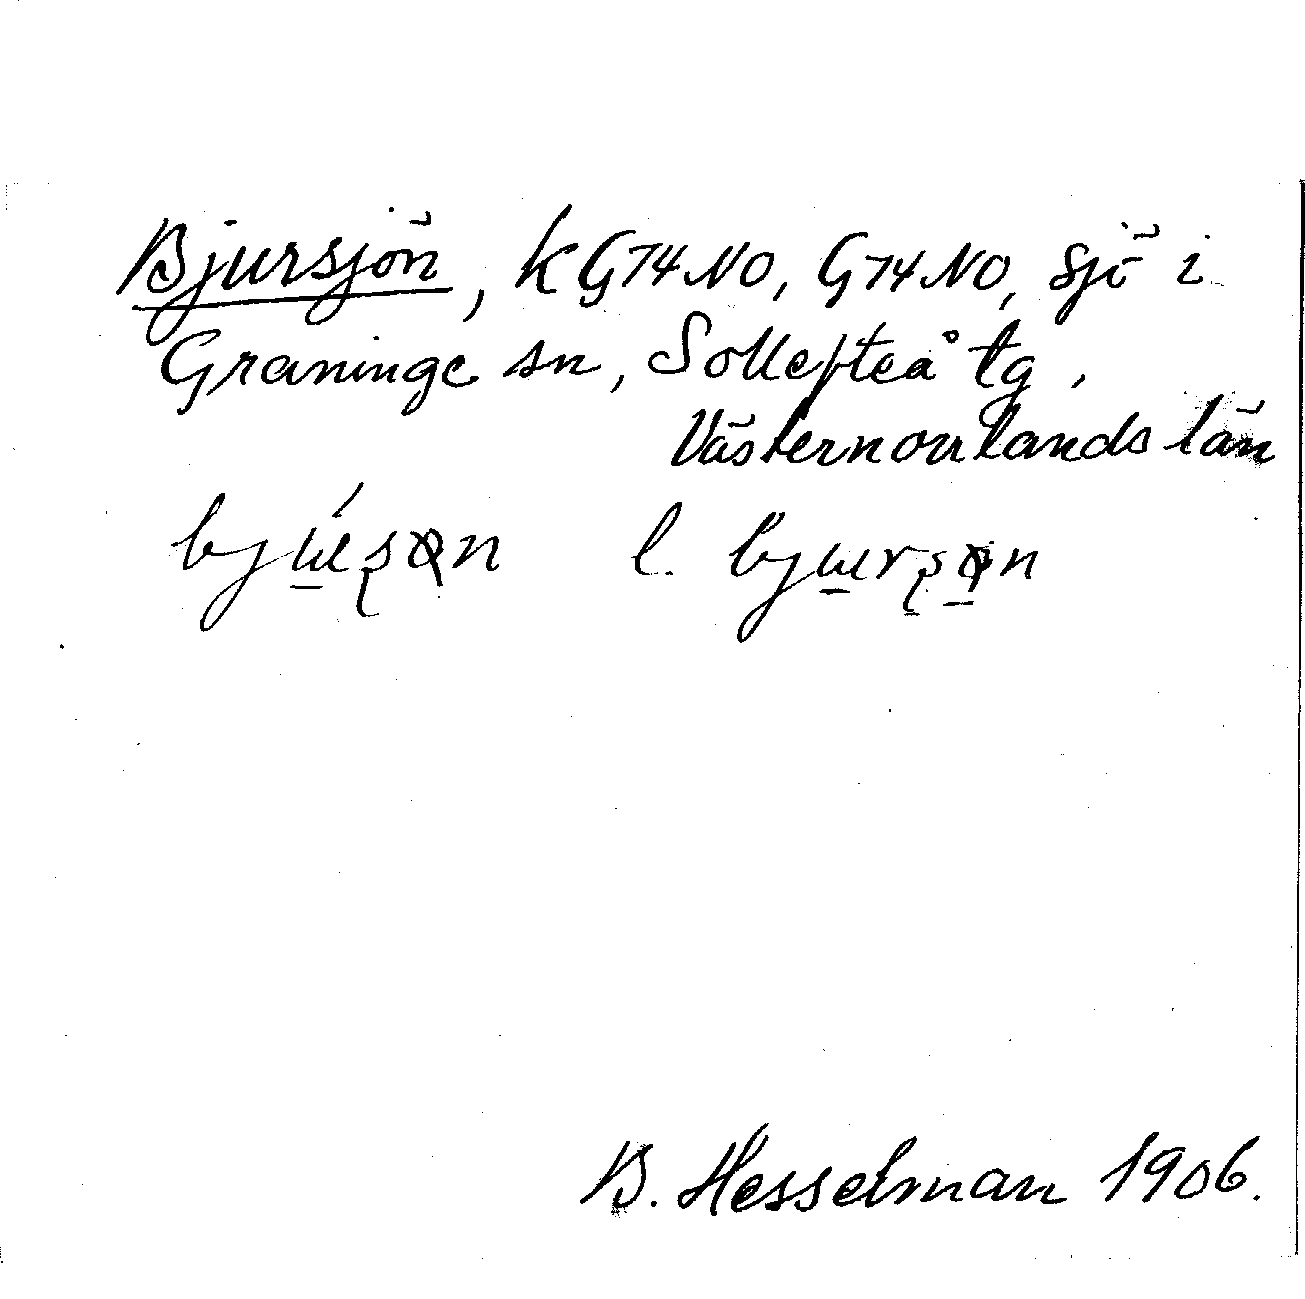 Bjursjön, KG74NO, G74NO, sjö i
Graninge sn, Sollefteå tg,
Västernorrlands län
l.
B. Hesselman 1906.